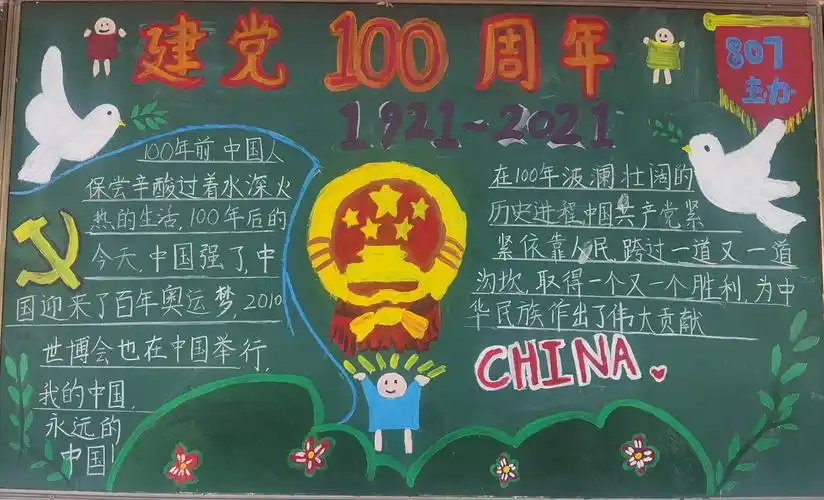 建党100周年
1921-2021
807
主办
100年前中国人
保尝辛酸过着水深火
热的生活,100年后的
今天,中国强了,中
国迎来了百年奥运梦,2010
世博会也在中国举行,
我的中国,
永远的
中国!
在100年波澜壮阔的
历史进程,中国共产党紧
紧依靠人民,跨过一道又一道
沟坎,取得一个又一个胜利,为中
华民族作出了伟大贡献
CHINA